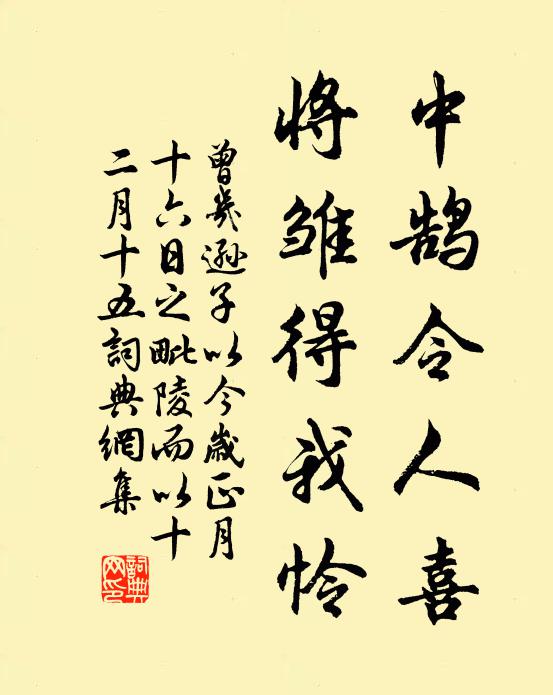 中鵠令人喜
將雛得我怜
曾幾遜子以今歲正月
十六日之毗陵而以十
二月十五詞典網集
詞典网印